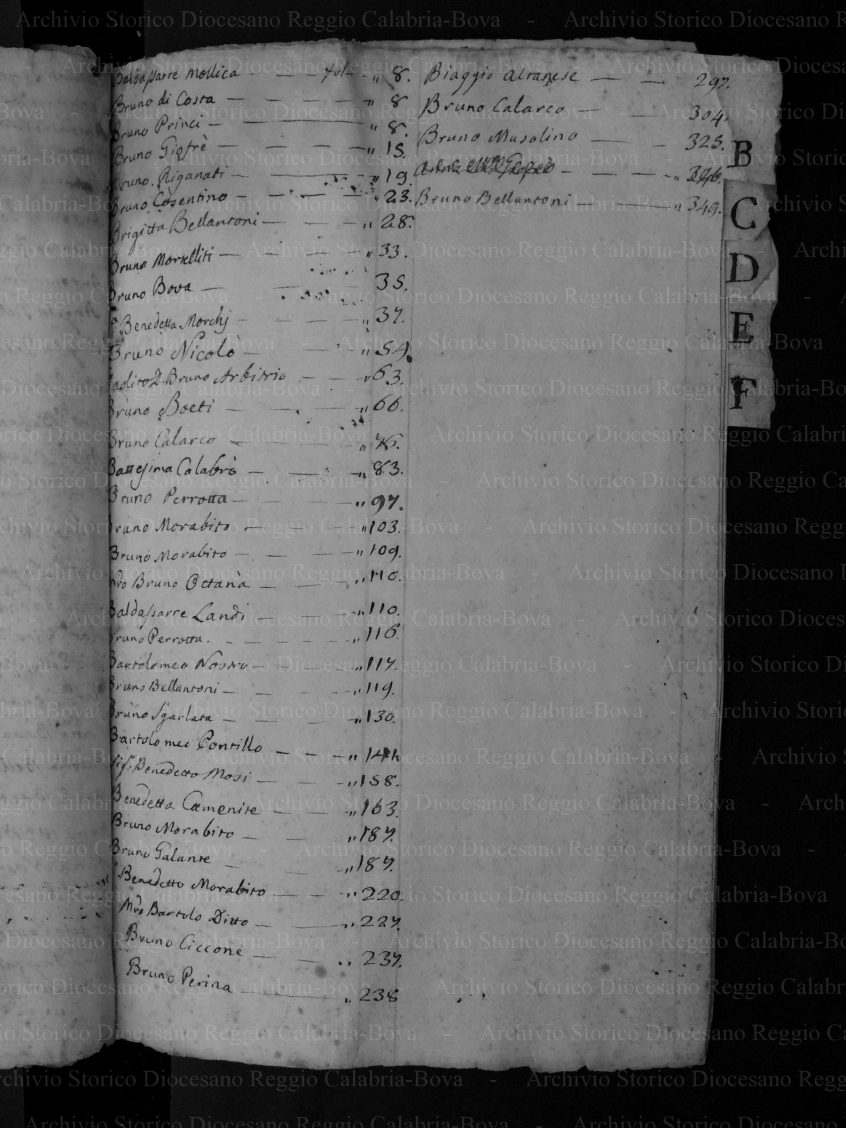 Baldassarre Mollica — fol — " 8.
Bruno di Costa — " 8
Bruno Princi — " 8.
Bruno Giofrè — " 15.
Bruno Riganati — " 19.
Bruno Cosentino — " 23.
Brigitta Bellantoni — " 28.
Bruno Morelliti — " 33.
Bruno Bova — 35.
Benedetta Morchj — " 37.
Bruno Nicolò — " 54
D. Bruno Arbitrio — " 63.
Bruno Boeti — " 66.
Bruno Calarco — "
Battesima Calabrò — " 83.
Bruno Perrotta — " 97.
Bruno Morabito — " 103.
Bruno Morabito — " 109.
Mro Bruno Octanà — " 110.
Baldassarre Landi — " 110.
Bruno Perrotta. — " 116
Bartolomeo Nostro — " 117.
Bruno Bellantoni — " 119.
Bruno Sgarlata — " 130.
Bartolomeo Pontillo — "
Benedetto Mosi — " 158.
Benedetta Camenite — " 163.
Bruno Morabito — " 187.
Bruno Galante — " 187.
Benedetto Morabito — " 220.
Mro Bartolo Ditto — " 227.
Bruno Ciccone — " 237.
Bruno Perina — " 238
Biaggio Altanese — 297.
Bruno Calarco — 304.
Bruno Musolino — 325.
Bruno Bellantoni — " 349.
B
C
D
E
F
Archivio Storico Diocesano Reggio Calabria-Bova